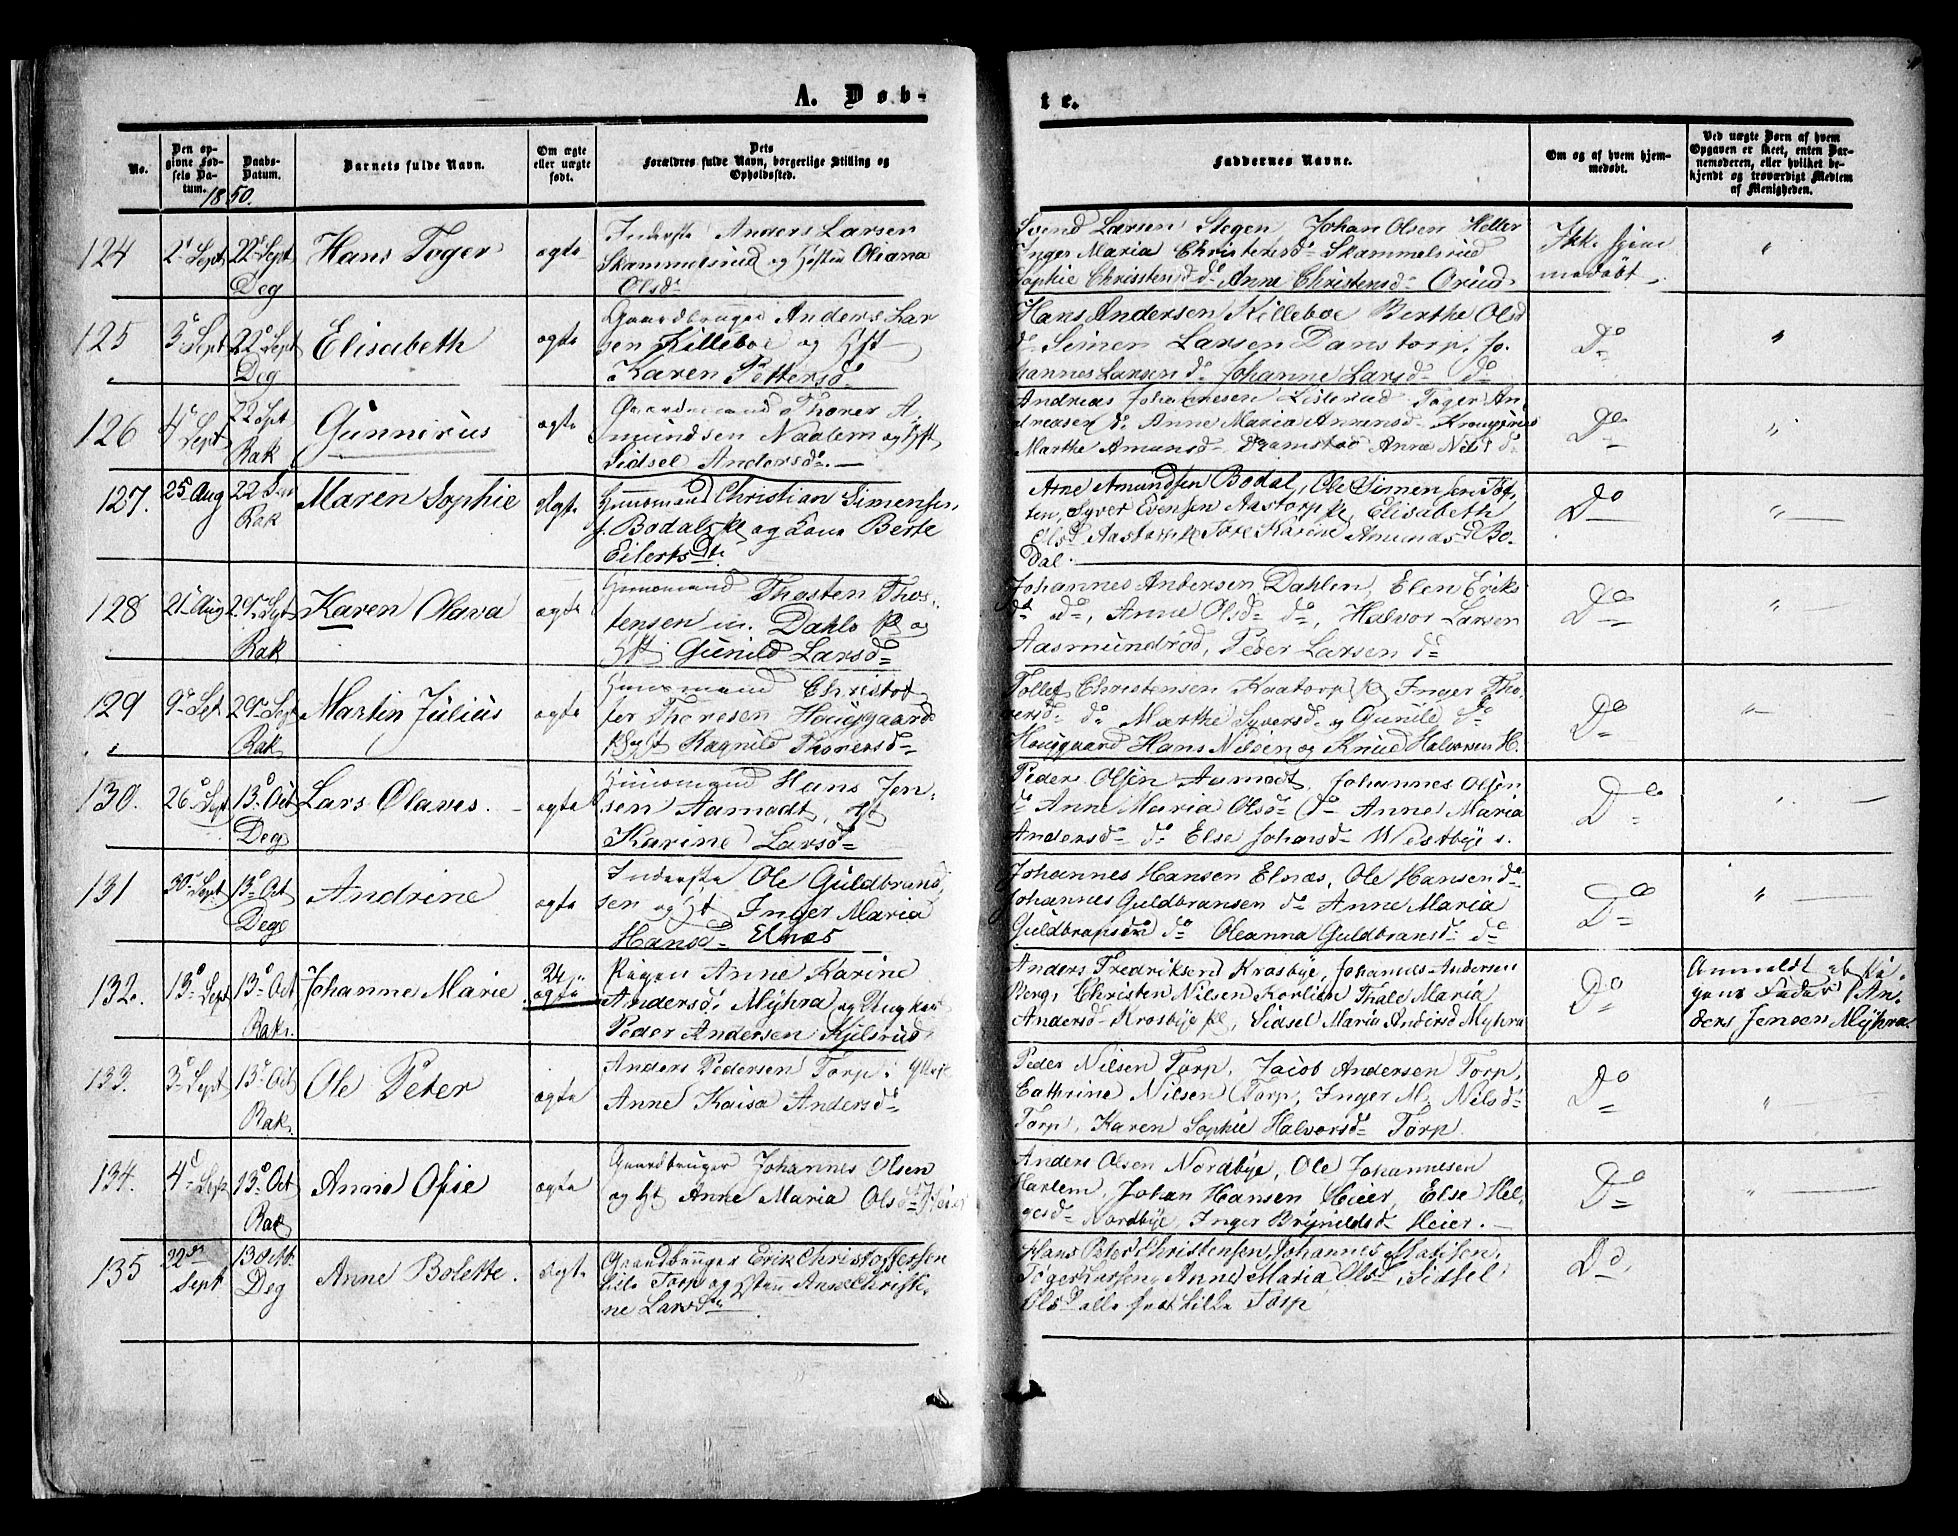 A. Døb-
te.
No.
Den opgivne Fødsels Datum.
Daabs-Datum.
1850.
Barnets fulde Navn.
Om ægte eller uægte født.
Dets Forældres fulde Navn, borgerlige Stilling og Opholdssted.
Faddernes Navne.
Om og af hvem hjemmedøbt.
Ved uægte Børn af hvem Opgaven er skeet, enten Barnemoderen, eller hvilket bekjendt og troværdigt Medlem af Menigheden.
124 2d Sept 22d Sept Deg Hans Toger ægte
Inderste Anders Larsen
Skammelsrud og Hustru Oliana
Olsd
Svend Larsen Stegen Johan Olsen Heller
Inger Maria Christensd Skammelsrud
Sophie Christensd do Anne Christensd Orud
Ikke hjemmedøbt "
125 3d Sept 22d Sept Deg Elisabeth ægte
Gaardbruger Anders Lar
sen Killeboe og Hst
Karen Pettersd
Hans Andersen Killeboe Berthe Olsd
do Simen Larsen Danstorp, Jo
hannes Larsen do Johanne Larsd do
Do "
126 4d Sept 22 Spt Rak Gunnerius ægte
Gaardmand Thorer A
mundsen Naalem og Hst
Sidsel Andersd
Andreas Johannesen Listerud Toger An
dreasen do Anne Maria
Marthe Amunsd Dramstad Anne Nilsd do
Do "
127. 25 Aug 22 Rak Maren Sophie ægte
Huusmand Christian Simensen
Bodals pl og Kone Berte
Eilertsdtr
Arne Amundsen Bodal, Ole Simensen Tof
ten, Syver Evensen Aastorp pl Elisabeth
Olsd Aastorp pl Tore Karine Amundsd Bo-
dal.
Do "
128 21 Aug 29 Spt Rak Karen Olava ægte
Huusmand Thosten Thos-
tensen u. Dahlo Pl og
Hst Gunild Larsd
Johannes Andersen Dahlen, Elen Eriks
d do, Anne Olsd do, Halvor Larsen
Aasmundrød, Peder Larsen do
Do "
129 9d Spt 29 Sept Rak Martin Julius ægte
Huusmand Christof
fer Thoresen Houggaard
pl og Hst Ragnild Thoresd
Tollef Christensen Kaatorp pl Inger Tho
resd do Marthe Syversd og Gunild do
Houggaard Hans Nilsen og Knud Halvorsen H.
Do "
130. 26d Sept 13d Oct Deg Lars Olaves. ægte
Huusmand Hans Jen-
sen Aamodt, Hst
Karine Larsd
Peder Olsen Aamodt, Johannes Olsen
do Anne Maria Olsd do Anne Maria
Andersd do Else Johansd Westbye
Do "
131 30d Sept 13d Oct Dege Andrine ægte
Inderste Ole Guldbrand
sen og Hst Inger Maria
Hansd Elnæs
Johannes Hansen Elnæs, Ole Hansen do
Johannes Guldbransen do Anne Maria
Guldbransd do Oleanna Guldbransd do
Do "
132. 13d Sept 13d Oct Rak. Johanne Marie uægte
Pigen Anne Karine
Andersd Myhra og Ungkarl
Peder Andersen Kjelsrud
Anders Fredriksen Krosbye, Johannes Andersen
Berg, Christen Nilsen Korlien Thale Maria
Andersd Krosbye pl, Sidsel Maria Andersd Myhra
Do
Anmeldt af Pi-
gens Fader An-
ders Jensen Myhra
133. 3d Sept 13d Oct Rak. Ole Peter ægte
Anders Pedersen Torp
Anne Kaisa Andersd
Peder Nilsen Torp, Jacob Andersen Torp,
Cathrine Nilsen Torp, Inger M. Nilsd
Torp, Karen Sophie Halvorsd Torp
Do "
134. 4d Sept 13d Oct Rak Anne Ofie ægte
Gaardbruger Johannes Olsen
og Hst Anne Maria Olsd Heier
Anders Olsen Nordbye, Ole Johannesen
Harlem, Johan Hansen Heier, Else Hel
gesd Nordbye, Inger Brynildsd Heier.
Do "
135 22de Sept 13 Octb. Deg Anne Bolette. ægte
Gaardbruger Erik Christoffersen
Lille Torp og Hstru Anne Christi-
ne Larsdtr
Hans Peter Christensen, Johannes Matisen,
Toger Larsen, Anne Maria Olsd, Sidsel
Olsd alle fra Lille Torp
Do